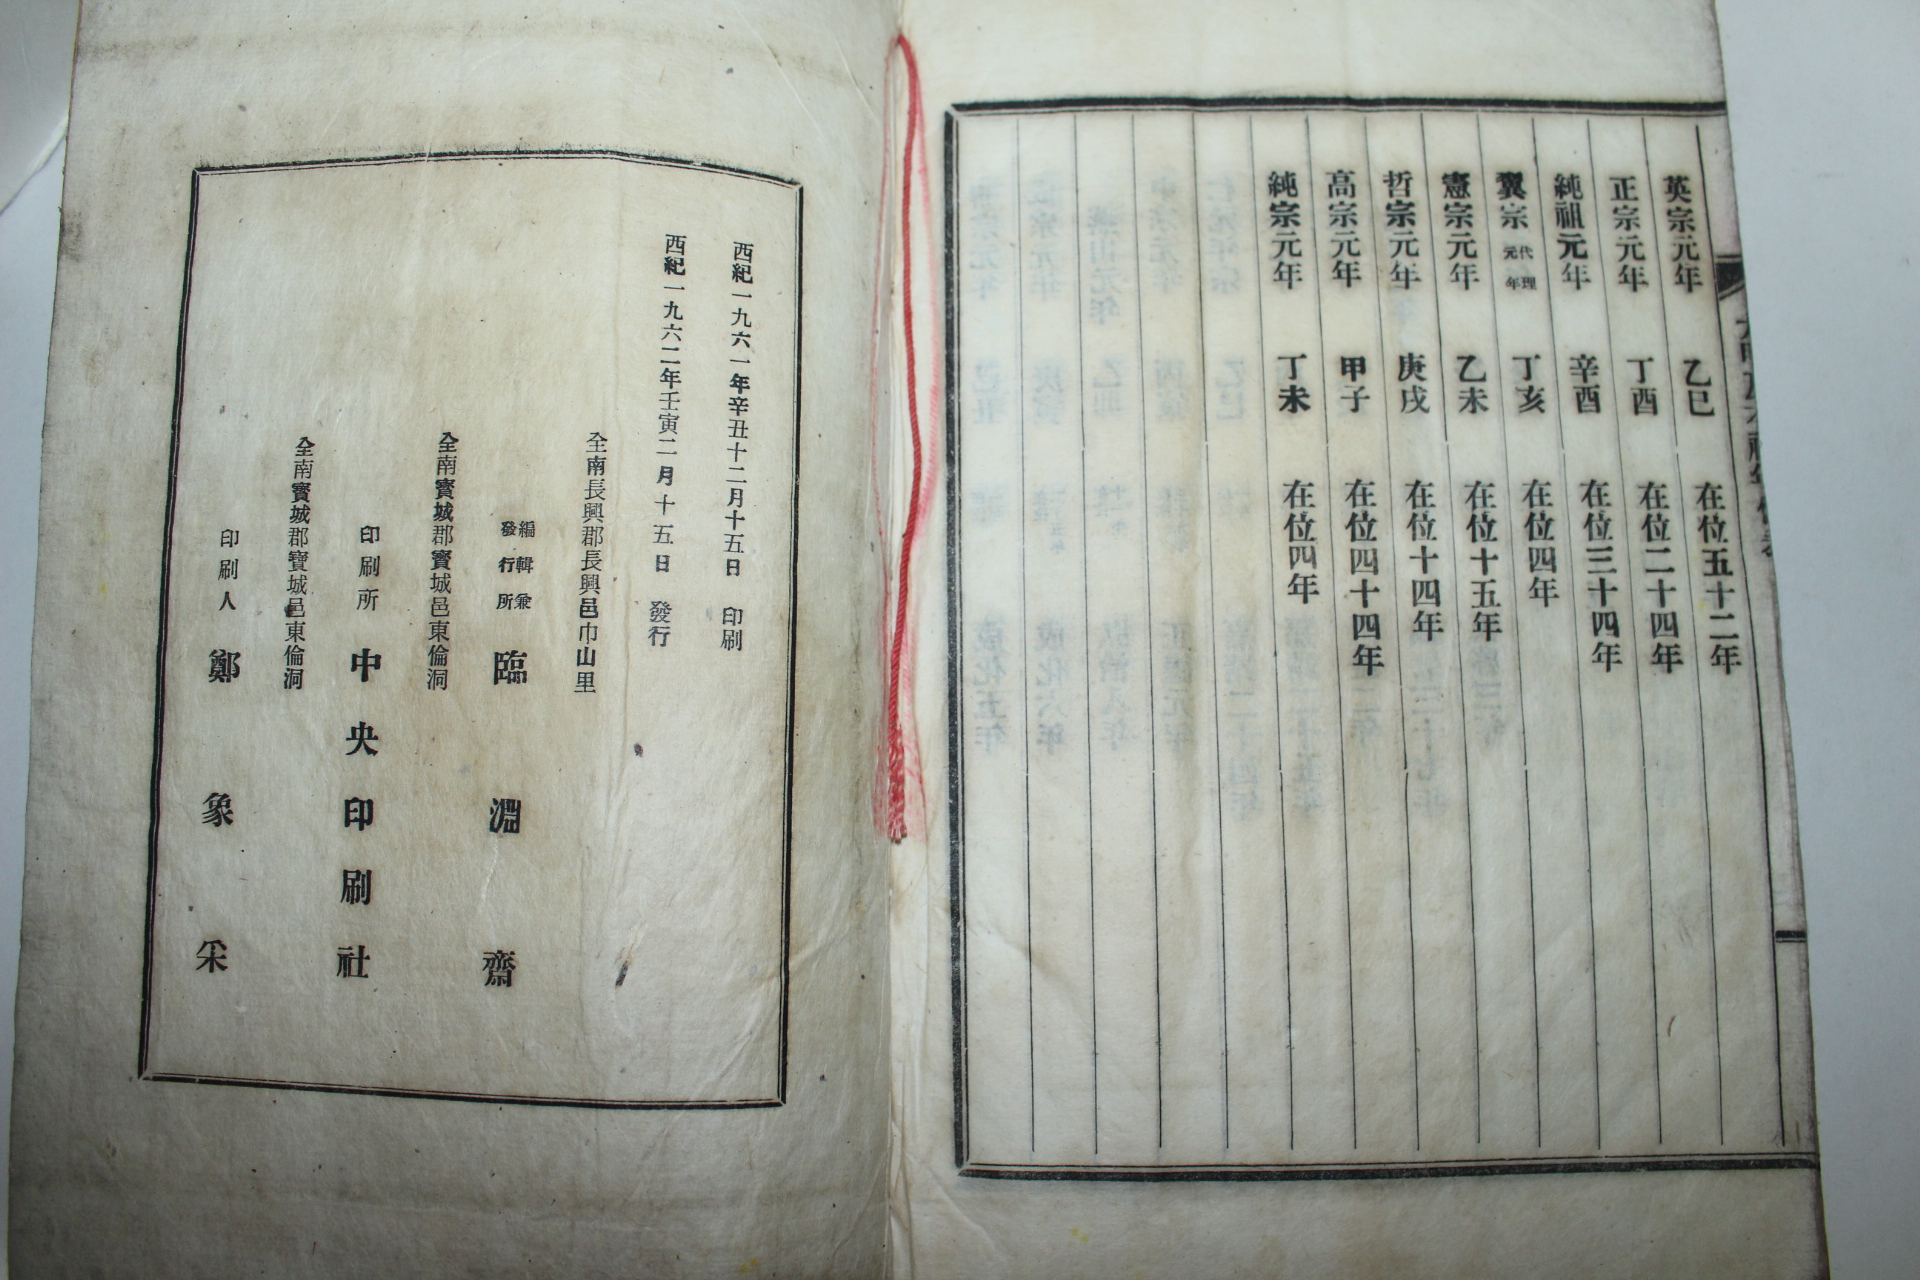 英宗元年 乙巳 在位五十二年
正宗元年 丁酉 在位二十四年
純祖元年 辛酉 在位三十四年
翼宗代理元年 丁亥 在位四年
憲宗元年 乙未 在位十五年
哲宗元年 庚戌 在位十四年
高宗元年 甲子 在位四十四年
純宗元年 丁未 在位四年
西紀一九六一年辛丑十二月十五日 印刷
西紀一九六二年壬寅二月十五日 發行
全南長興郡長興邑巾山里
編輯兼發行所 臨淵齋
全南寶城郡寶城邑東倫洞
印刷所 中央印刷社
全南寶城郡寶城邑東倫洞
印刷人 鄭象采